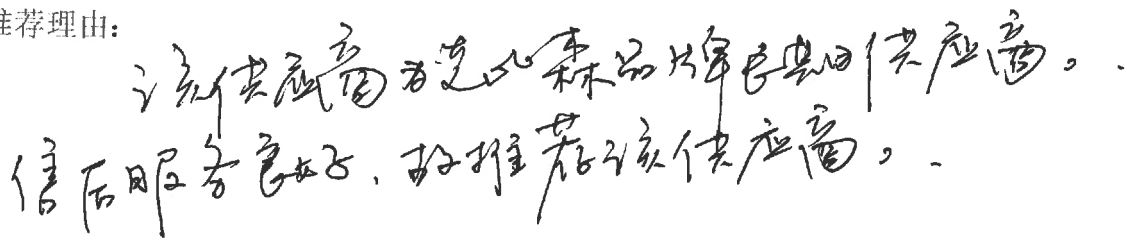 推荐理由：
该供应商为艾比森品牌长期供应商。
售后服务良好，故推荐该供应商。